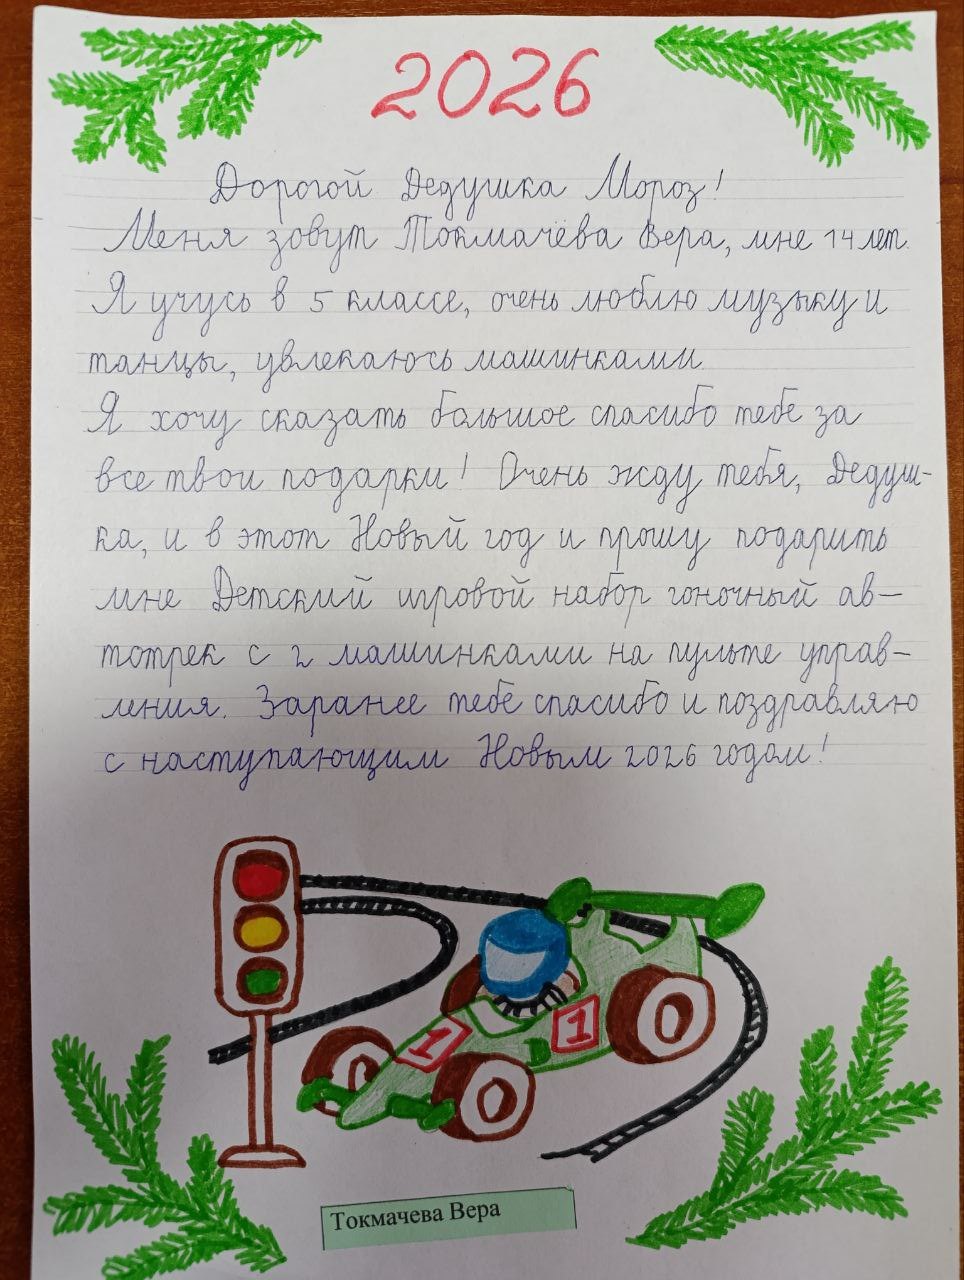 2026
Дорогой Дедушка Мороз!
Меня зовут Токмачёва Вера, мне 14 лет.
Я учусь в 5 классе, очень люблю музыку и
танцы, увлекаюсь машинками.
Я хочу сказать большое спасибо тебе за
все твои подарки! Очень жду тебя, Дедуш-
ка, и в этот Новый год и прошу подарить
мне Детский игровой набор гоночный ав-
тотрек с 2 машинками на пульте управ-
ления. Заранее тебе спасибо и поздравляю
с наступающим Новым 2026 годом!
1 1
Токмачева Вера